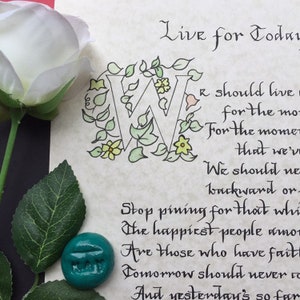 Live for Today
We should live
for the mo
For the momen
that we'v
We should ne
backward or
Stop pining for that whi
The happiest people amon
Are those who have fait
Tomorrow should never c
And yesterday's so far